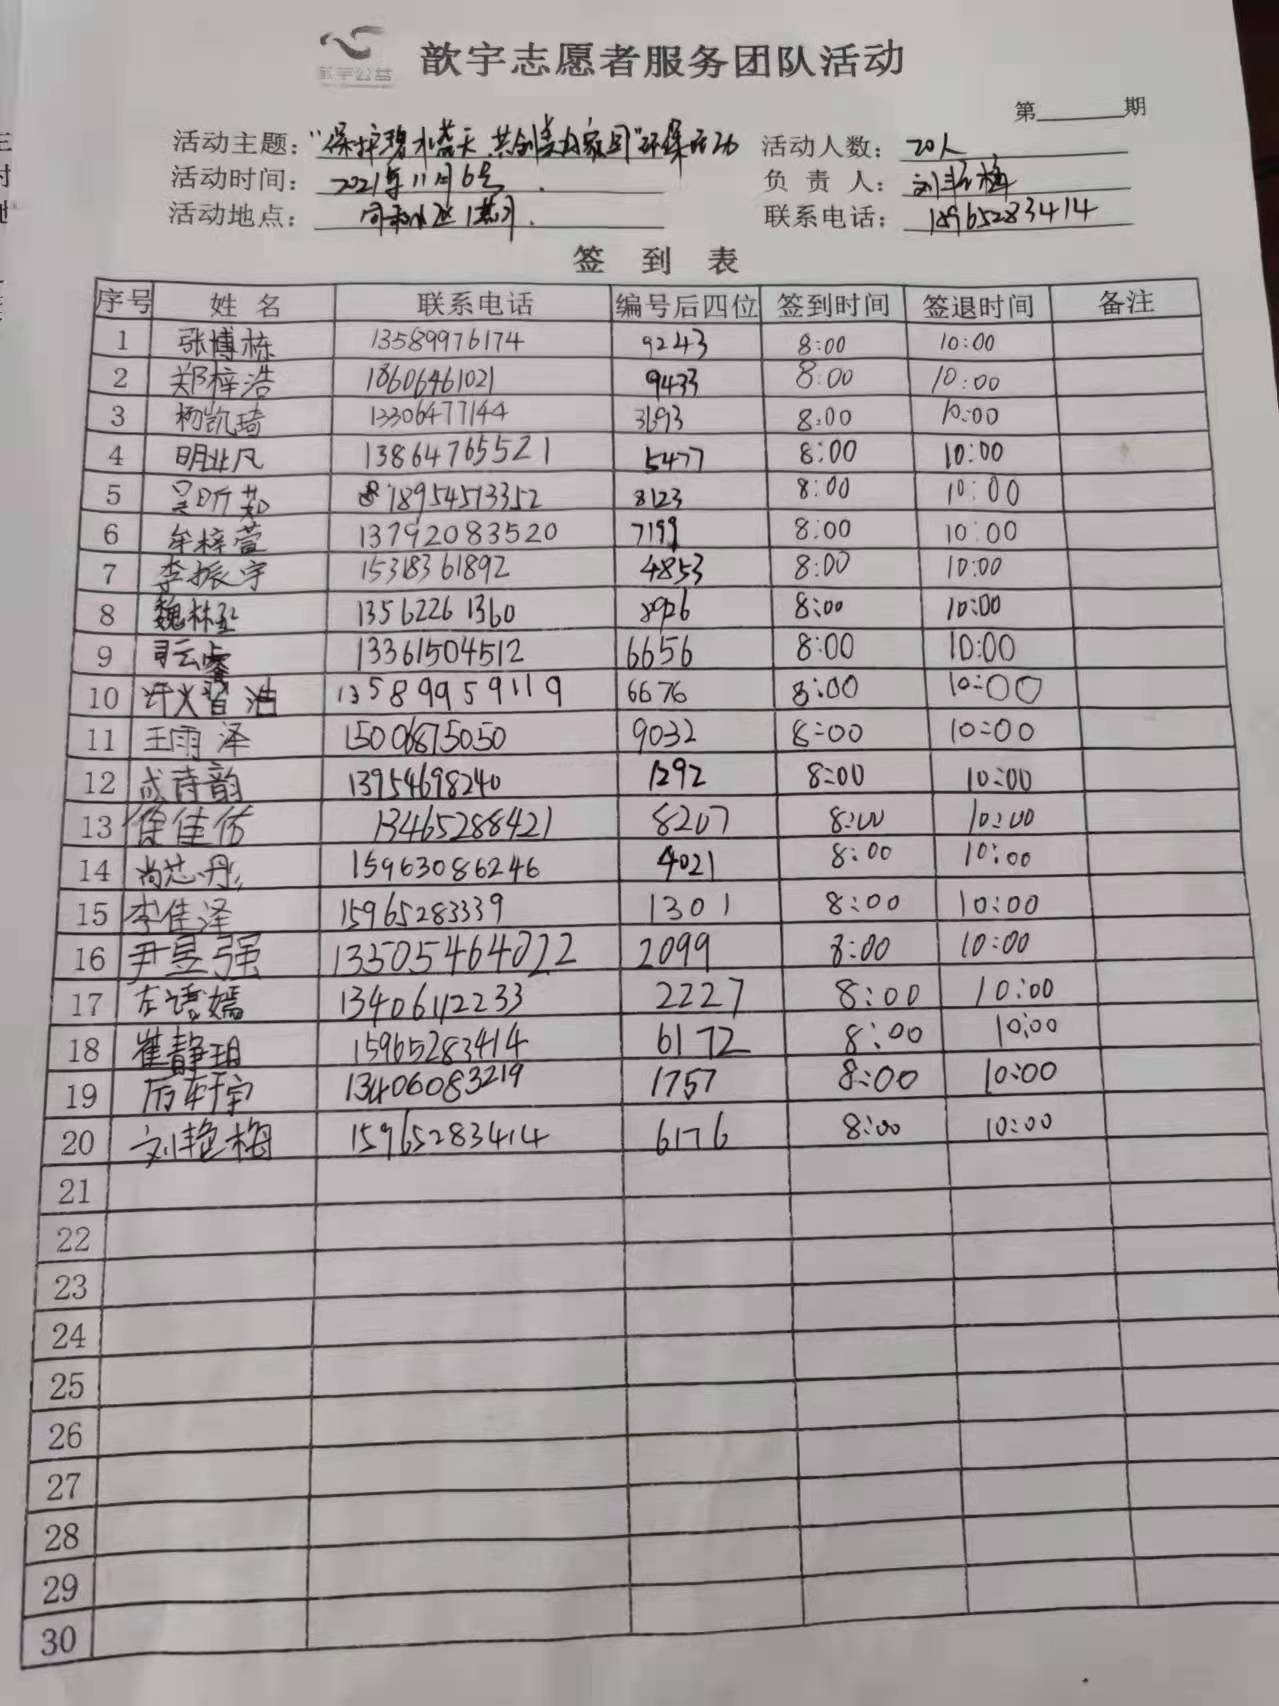 歆宇公益
歆宇志愿者服务团队活动
第 期
活动主题：“保护碧水蓝天 共创美好家园”环保活动 活动人数：20人
活动时间：2021年11月6号 负责人：刘艳梅
活动地点： 联系电话：15965283414
签到表
序号 姓名 联系电话 编号后四位 签到时间 签退时间 备注
1 张博栋 13589976174 9243 8:00 10:00
2 郑梓浩 18606461021 9433 8:00 10:00
3 杨凯琦 13306477144 3693 8:00 10:00
4 明业凡 13864765521 5477 8:00 10:00
5 吴昕茹 18954573352 8123 8:00 10:00
6 牟梓萱 13792083520 7199 8:00 10:00
7 李振宇 15318361892 4853 8:00 10:00
8 魏林 13562261360 8926 8:00 10:00
9 司云 13361504512 6656 8:00 10:00
10 13589959119 6676 8:00 10:00
11 王雨泽 15006875050 9032 8:00 10:00
12 成诗韵 13954698240 1292 8:00 10:00
13 徐佳佑 13465288421 8207 8:00 10:00
14 尚芯彤 15963086246 4021 8:00 10:00
15 李佳泽 15965283339 1301 8:00 10:00
16 尹昱强 13505464022 2099 8:00 10:00
17 左语嫣 13406112233 2227 8:00 10:00
18 崔静玥 15965283414 6172 8:00 10:00
19 厉轩宇 13406083219 1757 8:00 10:00
20 刘艳梅 15965283414 6176 8:00 10:00
21
22
23
24
25
26
27
28
29
30